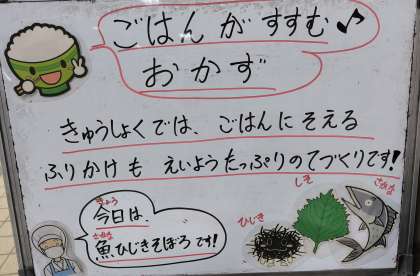 ごはんがすすむ♪
おかず
きゅうしょくでは、ごはんにそえる
ふりかけも えいようたっぷりのてづくりです!
きょう
今日は、
さかな
魚ひじきそぼろです!
ひじき
しそ
さかな